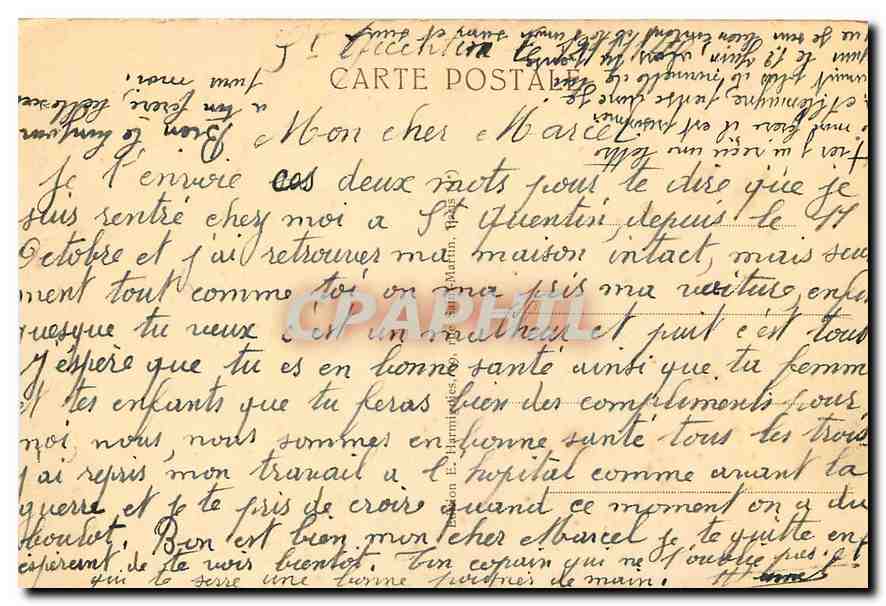 St Quentin le
CARTE POSTALE
Mon cher Marcel
Je t'envoie ces deux mots pour te dire que je
suis rentré chez moi a St Quentin, depuis le 11
Octobre et j'ai retrouver ma maison intact, mais seu
ment tout comme toi on ma pris ma voiture, enfin
quesque tu veux c'est un malheur et puit c'est tous
J'espère que tu es en bonne santé ainsi que ta femm
et tes enfants que tu feras bien des compliments pour
moi, nous, nous sommes en bonne santé tous les trois
j'ai repris, mon travail a l'hopital comme avant la
guerre et je te pris de croire quand ce moment on a du
boulot. Bon est bien mon cher Marcel je te quitte en
espèrent de te voir bientot. Ton copain qui ne t'oublie pas et
qui te serre une bonne poignée de main.
Hier j'ai reçu une lettre
mon frère il est prisonnier
juin le 12 juin
Bien le bonjour
a ton frère, belle soe
pour moi.
Edition E. Harmignies, rue Saint-Martin, Paris
CPAPHIL